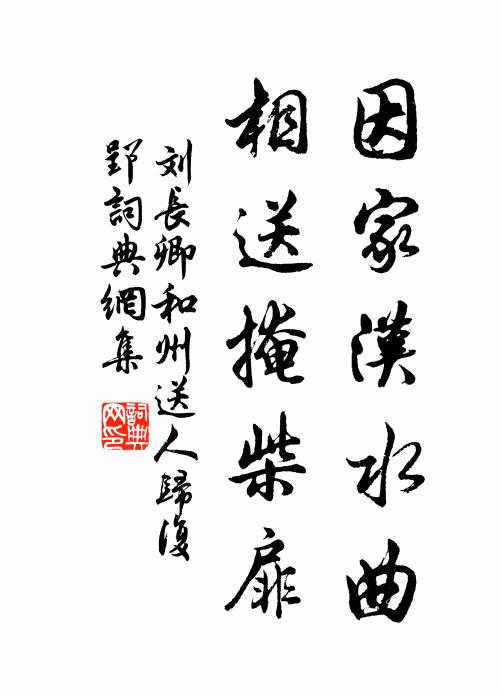 因家漢水曲
相送掩柴扉
刘長卿和州送人歸復
郢詞典網集
詞典
网印